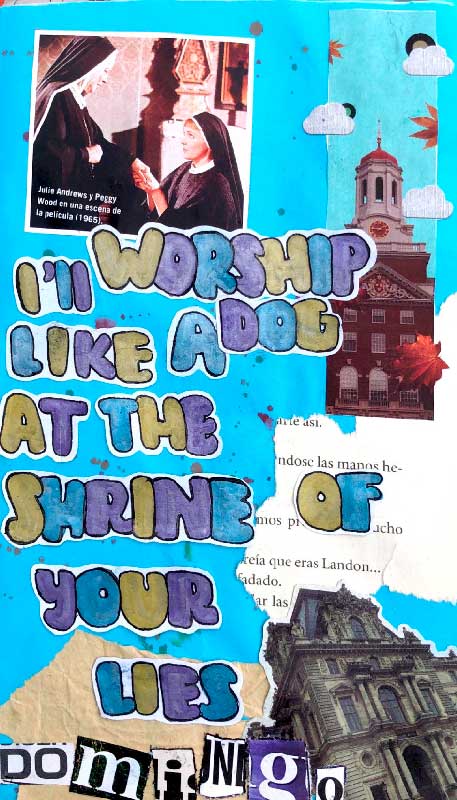 Julie Andrews y Peggy
Wood en una escena de
la película (1965).
I'll WORSHIP
LIKE A DOG
AT THE
SHRINE OF
YOUR
LIES
así.
las manos he-
reía que eras Landon...
fadado.
ar las
DOmiNgo